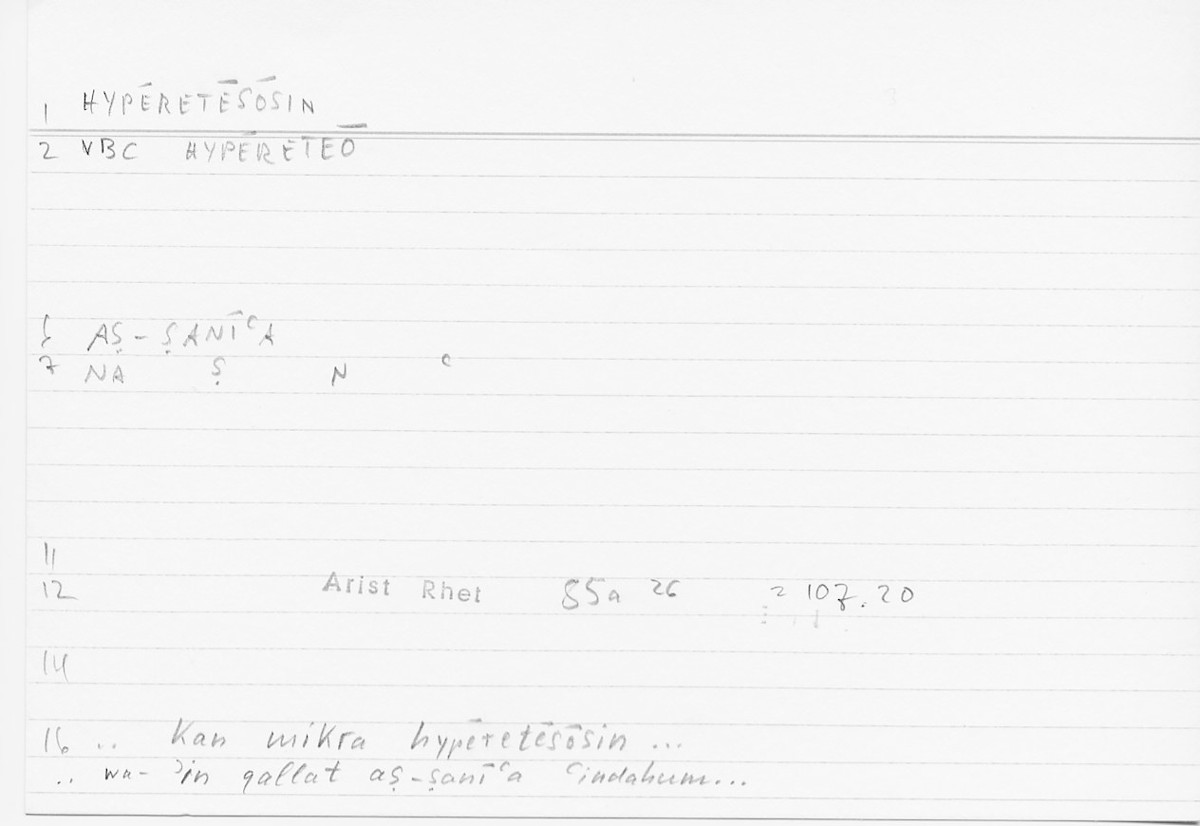 1 HYPĒRETĒSŌSIN
2 VBC HYPĒRETEŌ
6 AṢ-ṢANĪʿA
7 NA Ṣ N ʿ
11
12 Arist Rhet 85a 26 = 107.20
14
16 .. Kan mikra hypēretēsōsin ...
.. wa-ʾin qallat aṣ-ṣanīʿa ʿindahum...